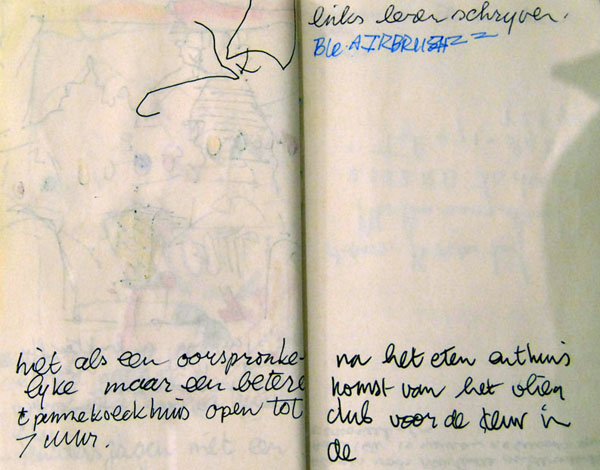 niet als een oorspronke-
lijke maar een betere
pannekoeckhuis open tot
7 uur.
links leren schrijven.
Ble AIRBRUSH
na het eten enthuis
komst van het
club voor de deur in
de